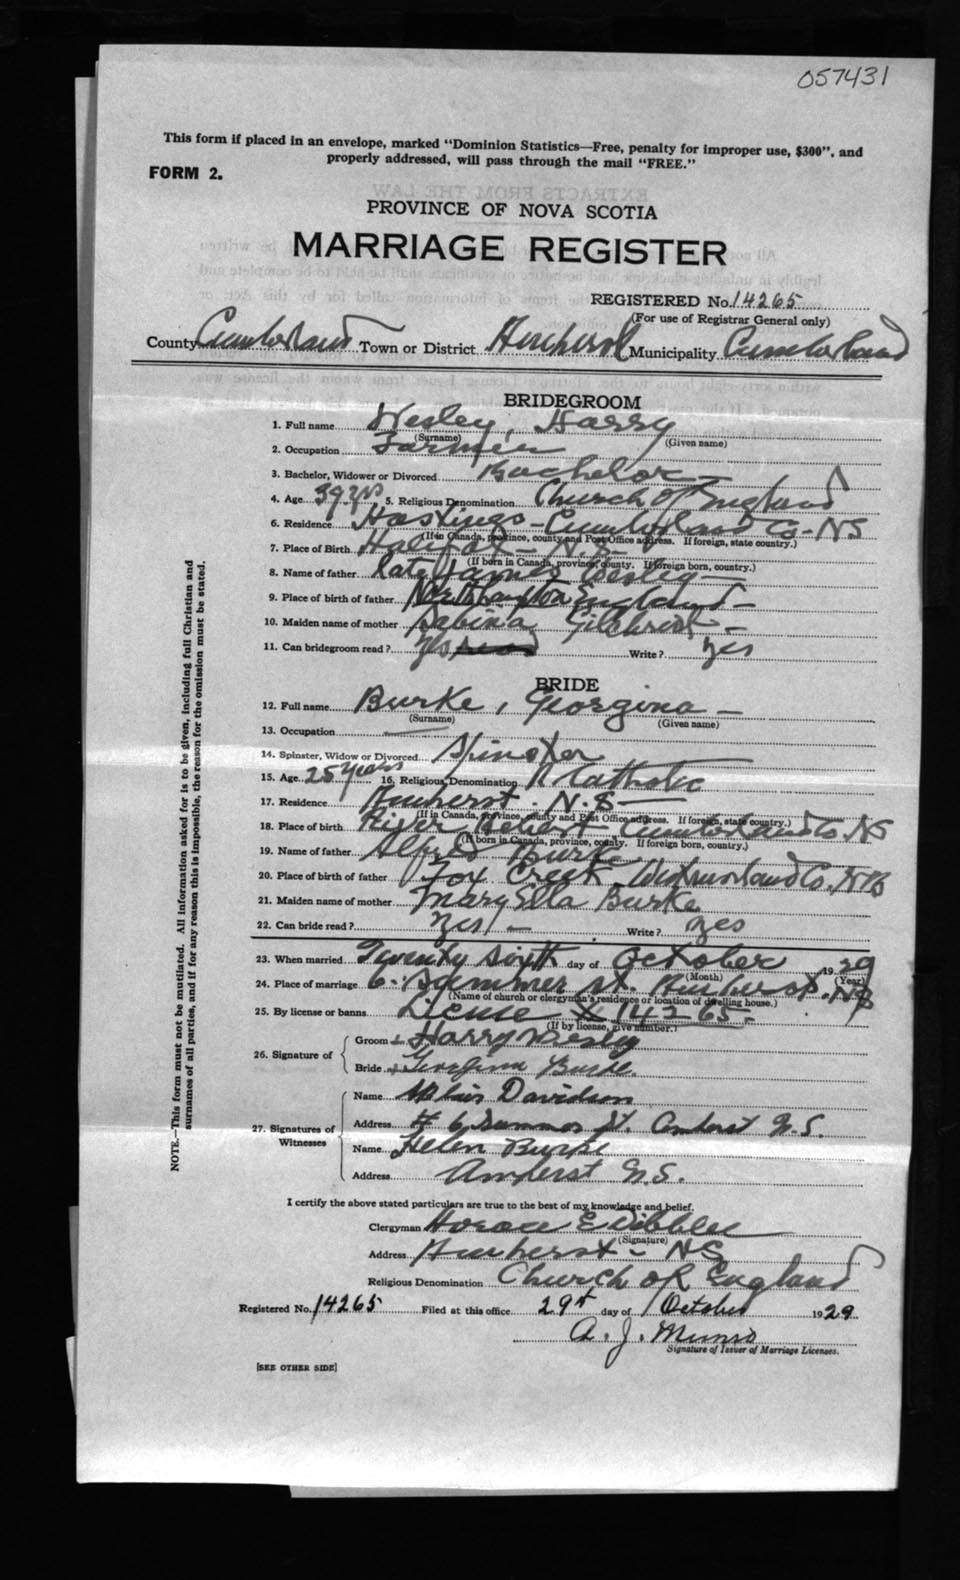 057431
This form if placed in an envelope, marked "Dominion Statistics—Free, penalty for improper use, $300", and
properly addressed, will pass through the mail "FREE."
FORM 2.
PROVINCE OF NOVA SCOTIA
MARRIAGE REGISTER
REGISTERED No. 14265
(For use of Registrar General only)
County Cumberland Town or District Amherst Municipality Cumberland
BRIDEGROOM
1. Full name Wesley, Harry
(Surname) (Given name)
2. Occupation Farmer
3. Bachelor, Widower or Divorced Bachelor
4. Age 39 yrs 5. Religious Denomination Church of England
6. Residence Hastings - Cumberland Co - NS
(If in Canada, province, county and Post Office address. If foreign, state country.)
7. Place of Birth Halifax - N.S -
(If born in Canada, province, county. If foreign born, country.)
8. Name of father late James Wesley
9. Place of birth of father Northampton England -
10. Maiden name of mother Sabina Gilchrist -
11. Can bridegroom read? yes Write? yes
BRIDE
12. Full name Burke, Georgina -
(Surname) (Given name)
13. Occupation —
14. Spinster, Widow or Divorced Spinster
15. Age 25 years 16. Religious Denomination R Catholic
17. Residence Amherst. N.S
(If in Canada, province, county and Post Office address. If foreign, state country.)
18. Place of birth River Hebert Cumberland Co. NS
(If born in Canada, province, county. If foreign born, country.)
19. Name of father Alfred Burke
20. Place of birth of father Fox Creek Westmorland Co. NB
21. Maiden name of mother Mary Ella Burke
22. Can bride read? Yes - Write? yes
23. When married Twenty Sixth day of October 1929
(Month) (Year)
24. Place of marriage 6. Summer St. Amherst. NS
(Name of church or clergyman's residence or location of dwelling house.)
25. By license or banns License # 14265.
(If by license, give number.)
26. Signature of
Groom Harry Wesley
Bride Georgina Burke.
27. Signatures of Witnesses
Name Davidson
Address # 6 Summer St. Amherst N.S.
Name Helen Burke
Address Amherst N.S.
I certify the above stated particulars are true to the best of my knowledge and belief.
Clergyman Horace E Dibblee
(Signature)
Address Amherst - NS
Religious Denomination Church of England
Registered No. 14265 Filed at this office 29th day of October 1929
A. J. Munro
Signature of Issuer of Marriage Licenses.
[SEE OTHER SIDE]
NOTE.—This form must not be mutilated. All information asked for is to be given, including full Christian and
surnames of all parties, and if for any reason this is impossible, the reason for the omission must be stated.